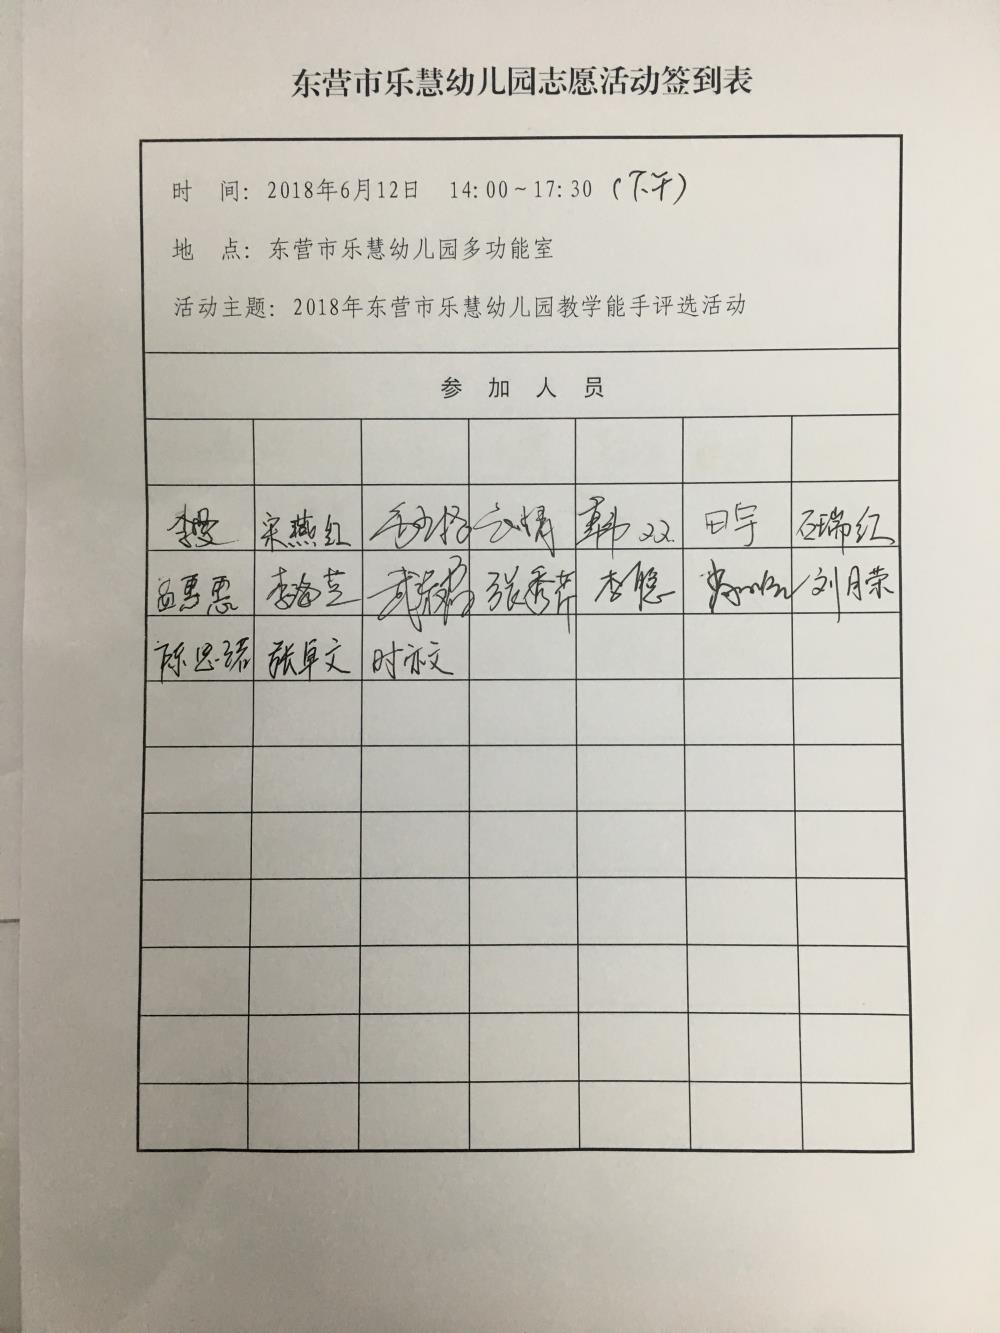 东营市乐慧幼儿园志愿活动签到表
时 间：2018年6月12日 14:00~17:30（下午）
地 点：东营市乐慧幼儿园多功能室
活动主题：2018年东营市乐慧幼儿园教学能手评选活动
参 加 人 员
李雯 宋燕红 韩双双 田宇 石瑞红
孟惠惠 李海芝 张秀芹 李聪 刘月荣
陈思诺 张卓文 时亦文